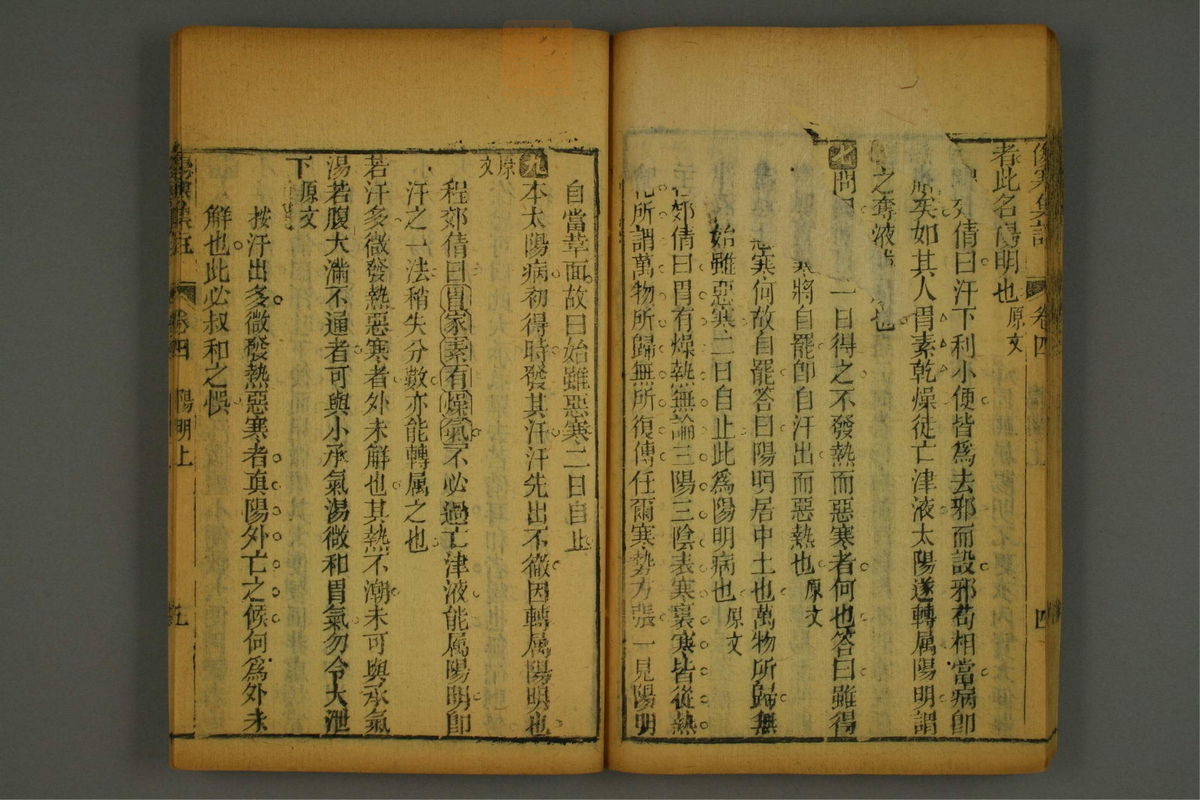 傷寒集註 卷四 四
者此名陽明也原文
郊倩曰汗下利小便皆爲去邪而設邪苟相當病卽
矣如其人胃素乾燥徒亡津液太陽遂轉属陽明謂
之奪液 也
問 一日得之不發熱而惡寒者何也答曰雖得
寒將自罷卽自汗出而惡熱也原文
惡寒何故自罷答曰陽明居中土也萬物所歸無
始雖惡寒二日自止此爲陽明病也原文
郊倩曰胃有燥熱無論三陽三陰表寒裏寒皆從熱
所謂萬物所歸無所復傳任爾寒勢方張一見陽明
自當革面故曰始雖惡寒二日自止
九 本太陽病初得時發其汗汗先出不徹因轉属陽明也
原文
程郊倩曰胃家素有燥氣不必過亡津液能属陽明卽
汗之一法稍失分數亦能轉属之也
若汗多微發熱惡寒者外未解也其熱不潮未可與承氣
湯若腹大滿不通者可與小承氣湯微和胃氣勿令大泄
下原文
按汗出多微發熱惡寒者眞陽外亡之候何爲外未
解也此必叔和之悞
卷四 陽明上 五